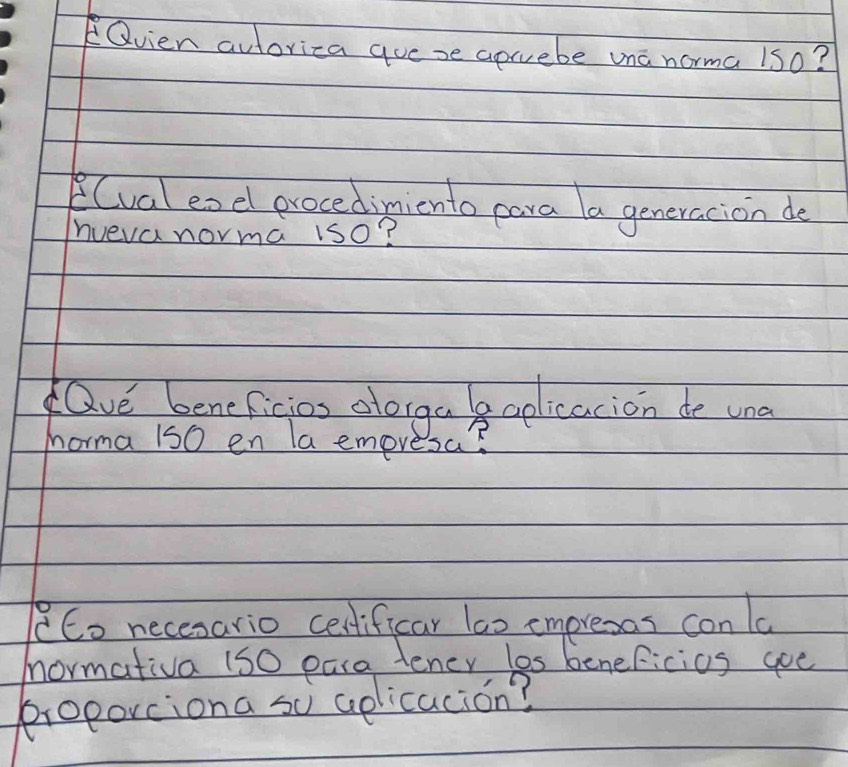 ¿Quien autoriza que se apruebe una norma ISO?
¿Cual es el procedimiento para la generación de
nueva norma ISO?
¿Qué beneficios otorga la aplicación de una
norma ISO en la empresa?
¿Es necesario certificar las empresas con la
normativa ISO para tener los beneficios que
proporciona su aplicación?